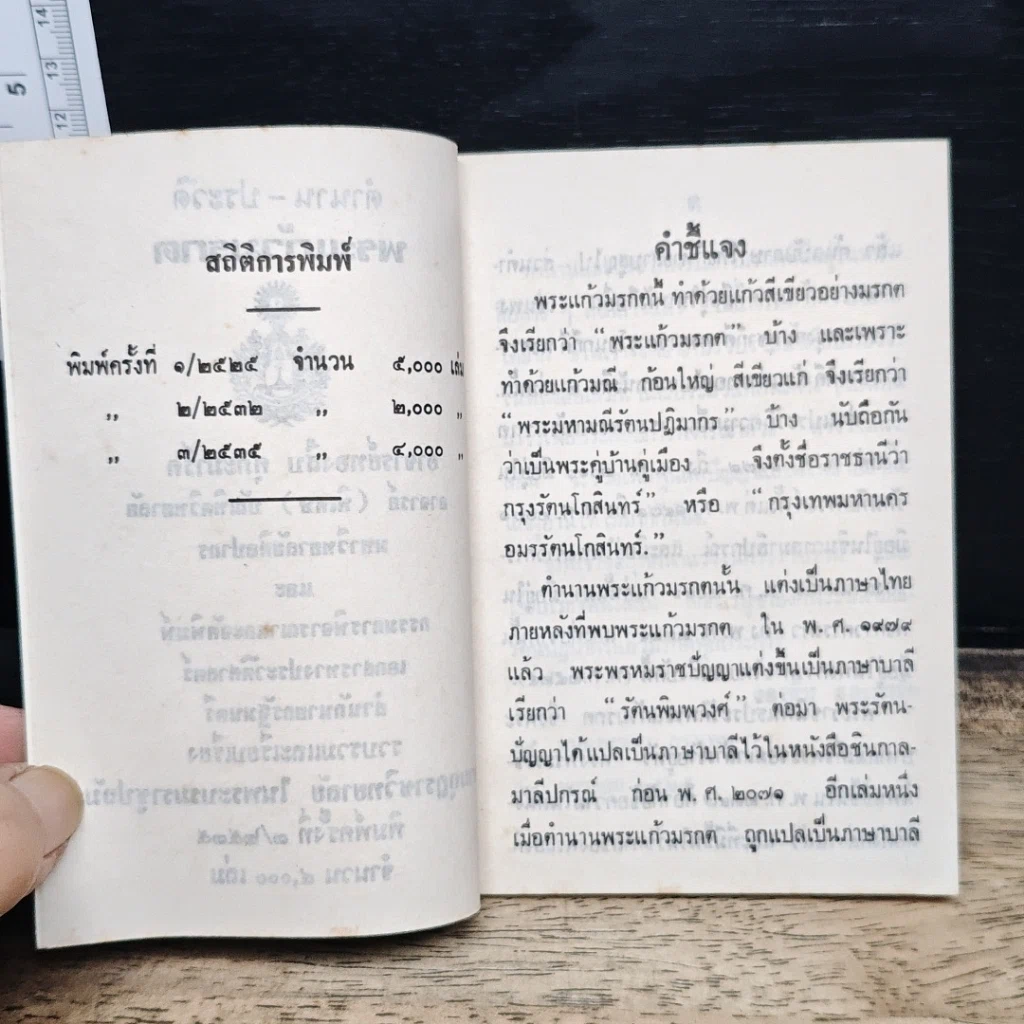 14
13
12
5
สถิติการพิมพ์
พิมพ์ครั้งที่ ๑/๒๕๒๕ จำนวน ๕,๐๐๐ เล่ม
,, ๒/๒๕๓๒ ,, ๒,๐๐๐ ,,
,, ๓/๒๕๓๕ ,, ๔,๐๐๐ ,,
คำชี้แจง
พระแก้วมรกตนี้ ทำด้วยแก้วสีเขียวอย่างมรกต
จึงเรียกว่า “พระแก้วมรกต” บ้าง และเพราะ
ทำด้วยแก้วมณี ก้อนใหญ่ สีเขียวแก่ จึงเรียกว่า
“พระมหามณีรัตนปฏิมากร” บ้าง นับถือกัน
ว่าเป็นพระคู่บ้านคู่เมือง จึงตั้งชื่อราชธานีว่า
กรุงรัตนโกสินทร์” หรือ “กรุงเทพมหานคร
อมรรัตนโกสินทร์.”
ตำนานพระแก้วมรกตนั้น แต่งเป็นภาษาไทย
ภายหลังที่พบพระแก้วมรกต ใน พ. ศ. ๑๙๗๙
แล้ว พระพรหมราชปัญญาแต่งขึ้นเป็นภาษาบาลี
เรียกว่า “รัตนพิมพวงศ์” ต่อมา พระรัตน-
ปัญญาได้แปลเป็นภาษาบาลีไว้ในหนังสือชินกาล-
มาลีปกรณ์ ก่อน พ. ศ. ๒๐๗๑ อีกเล่มหนึ่ง
เมื่อตำนานพระแก้วมรกต ถูกแปลเป็นภาษาบาลี